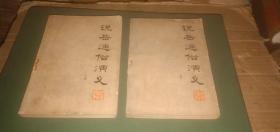 说岳通俗演义
说岳通俗演义